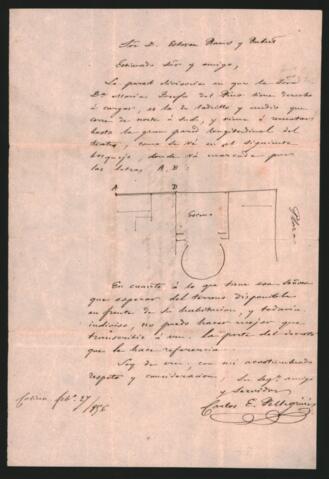 Sor D. Esteban Rams y Rubert
Estimado Sor y amigo,
La pared divisoria en que la Sora
Da Maria Josefa del Pino tiene derecho
á cargar, es la de ladrillo y medio que
corre de norte á Sud, y viene á rematar
hasta la gran pared longitudinal del
teatro, como se vé en el siguiente
bosquejo, donde vá marcada por
las letras A. B:
A B
Escena
Plaza
En cuanto á lo que tiene esa Señora
que esperar del terreno disponible
en frente de su habitacion, y todavia
indiviso, no puedo hacer mejor que
transcribir á vm. la parte del decreto
que le hace referencia.
Soy de vm, con mi acostumbrado
respeto y consideracion, Su Sego amigo
y Servidor
Carlos E. Pellegrini
febo 27/856